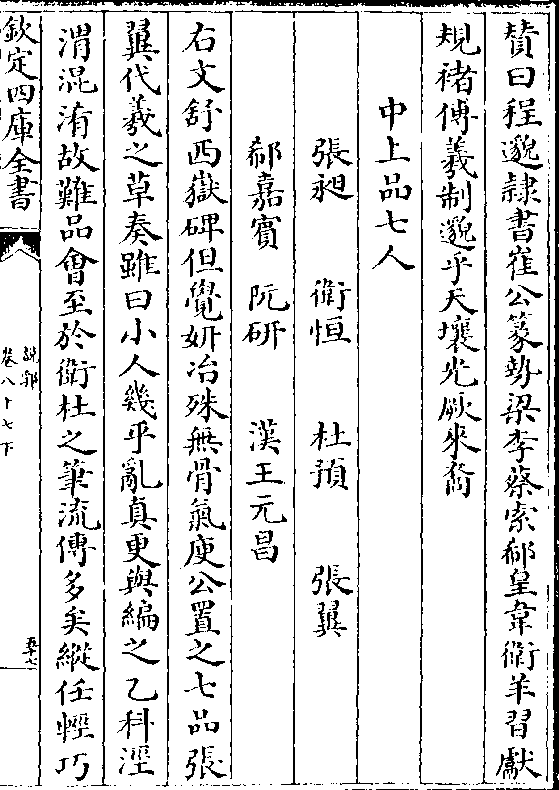 贊曰程邈隸書崔公篆勢梁李蔡索郗皇韋衛羊習獻
規褚傅義制邈乎天壤光厥來裔
中上品七人
張昶　衛恒　杜預　張翼
郗嘉賓　阮研　漢王元昌
右文舒西嶽碑但覺妍冶殊無骨氣庾公置之七品張
翼代羲之草奏雖曰小人幾乎亂真更與編之乙科涇
渭混淆故難品會至於衛杜之筆流傳多矣縱任輕巧
欽定四庫全書
說郛
卷八十七下